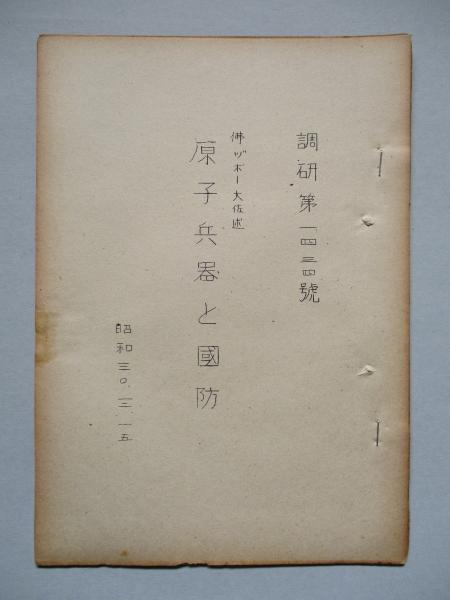 調研第一四三四號
佛ヅボー大佐述
原子兵器と國防
昭和三〇.三.一五